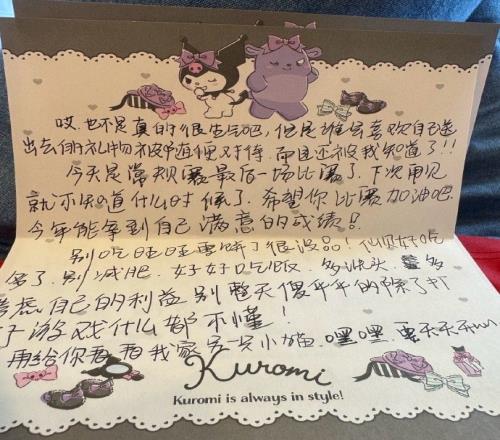 哎.也不是真的很生气吧,但是谁会喜欢自己送
出去的礼物被随便对待,而且还被我知道了!!
今天是常规赛最后一场比赛了.下次再见
就不知道什么时候了.希望你比赛加油吧.
今年能拿到自己满意的成绩!
别吃旺旺雪饼了很没品!仙贝好吃
多了.别减肥.好好吃饭.多洗头.多
考虑自己的利益别整天傻乎乎的除了打
游戏什么都不懂!
再给你看看我家另一只小猫.嘿嘿.
Kuromi
Kuromi is always in style!